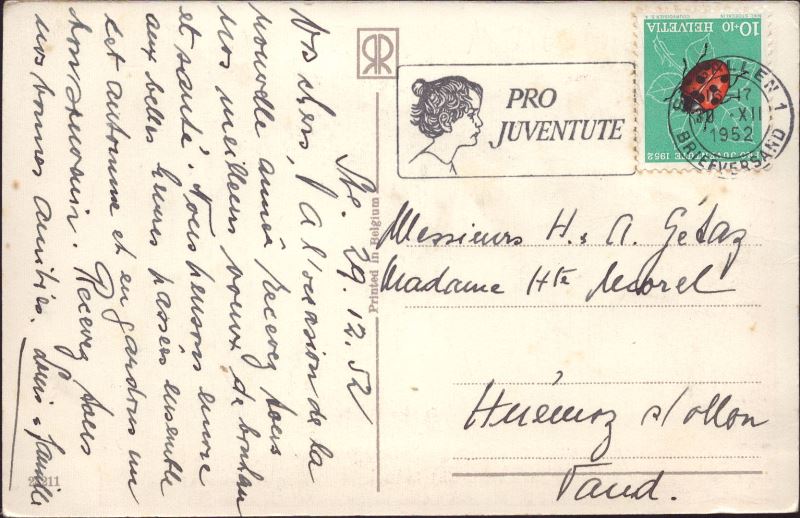 Ste. 29.12.52
Vs chers, A l'occasion de la
nouvelle année recevez tous
nos meilleurs voeux de bonheur
et santé. Nous pensons encore
aux belles heures passées ensemble
cet automne et en gardons un
bon souvenir. Recevez tous
nos bonnes amitiés. famille
21211
Printed in Belgium
PRO
JUVENTUTE
HELVETIA
10+10
PRO JUVENTUTE 1952
ST. GALLEN 1
30. XII
1952
BRIEFVERSAND
Messieurs H. & A. Gétaz
Madame Hte Morel
Huémoz s/ollon
Vaud.